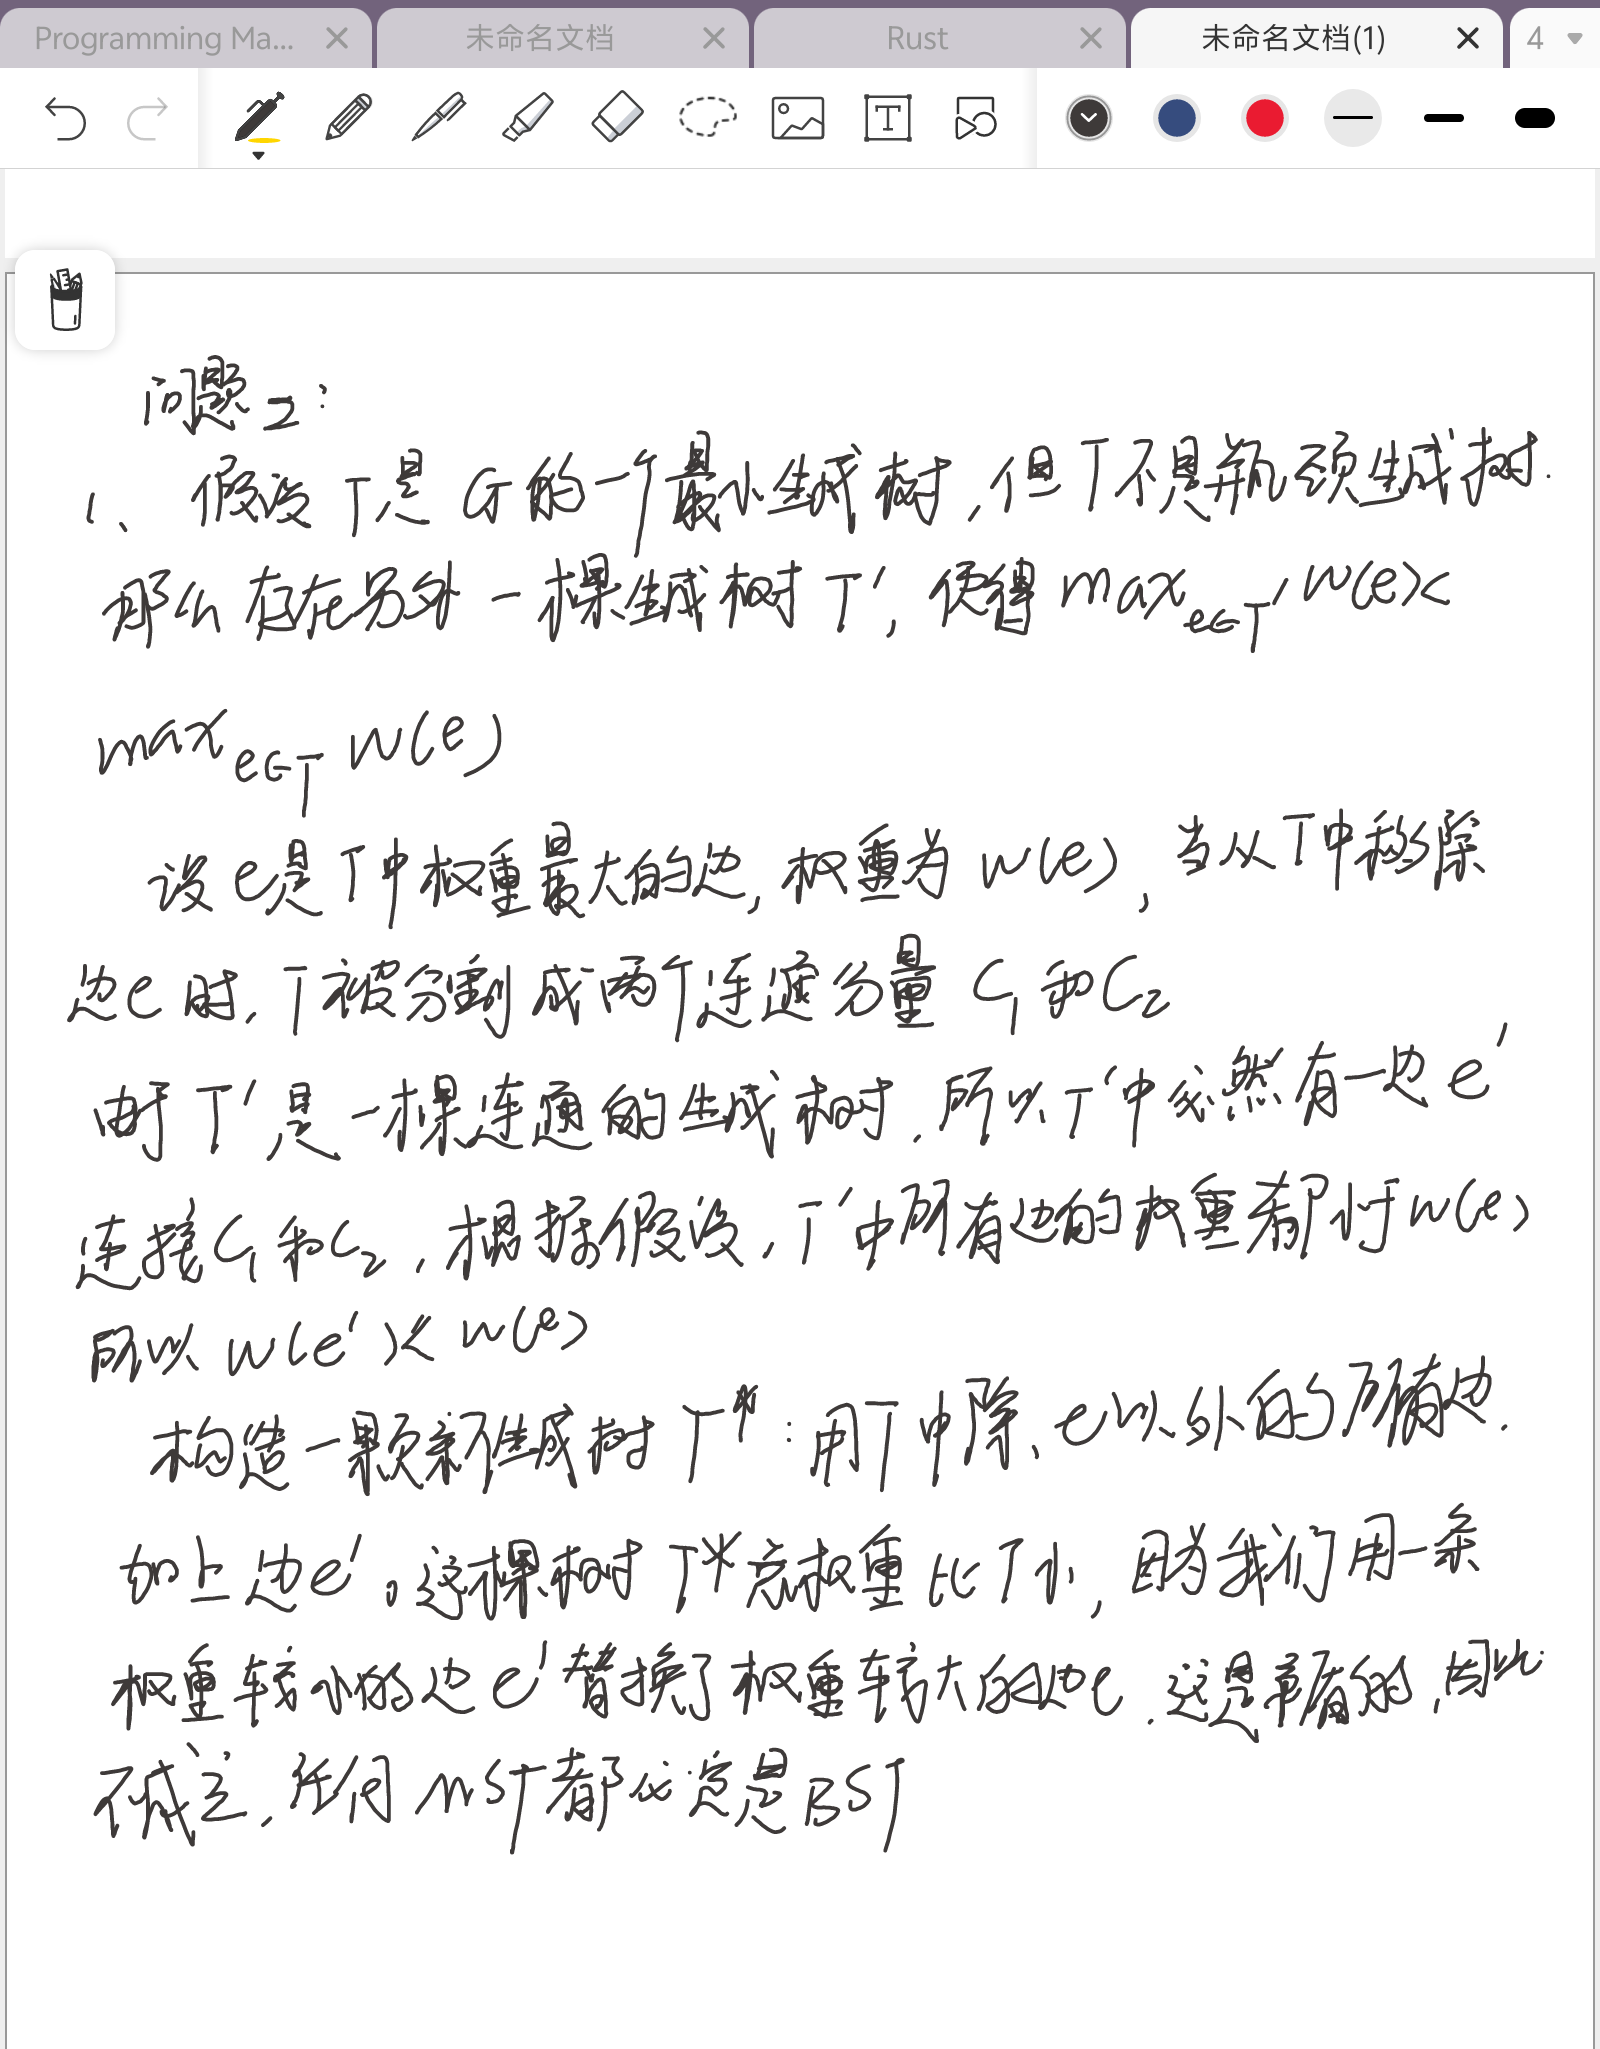 Programming Ma... 未命名文档 Rust 未命名文档(1) 4
T
问题2:
1、假设T是G的一个最小生成树,但T不是瓶颈生成树.
那么存在另外一棵生成树T',使得max_{e∈T'}w(e)<
max_{e∈T}w(e)
设e是T中权重最大的边,权重为w(e),当从T中移除
边e时,T被分割成两个连通分量C₁和C₂
由于T'是一棵连通的生成树.所以T'中必然有一边e'
连接C₁和C₂,根据假设,T'中所有边的权重都小于w(e)
所以w(e')<w(e)
构造一颗新生成树T*:用T中除e以外的所有边.
加上边e'。这棵树T*总权重比T小,因为我们用一条
权重较小的边e'替换了权重较大的边e.这是矛盾的,因此
不成立.任何MST都必定是BST